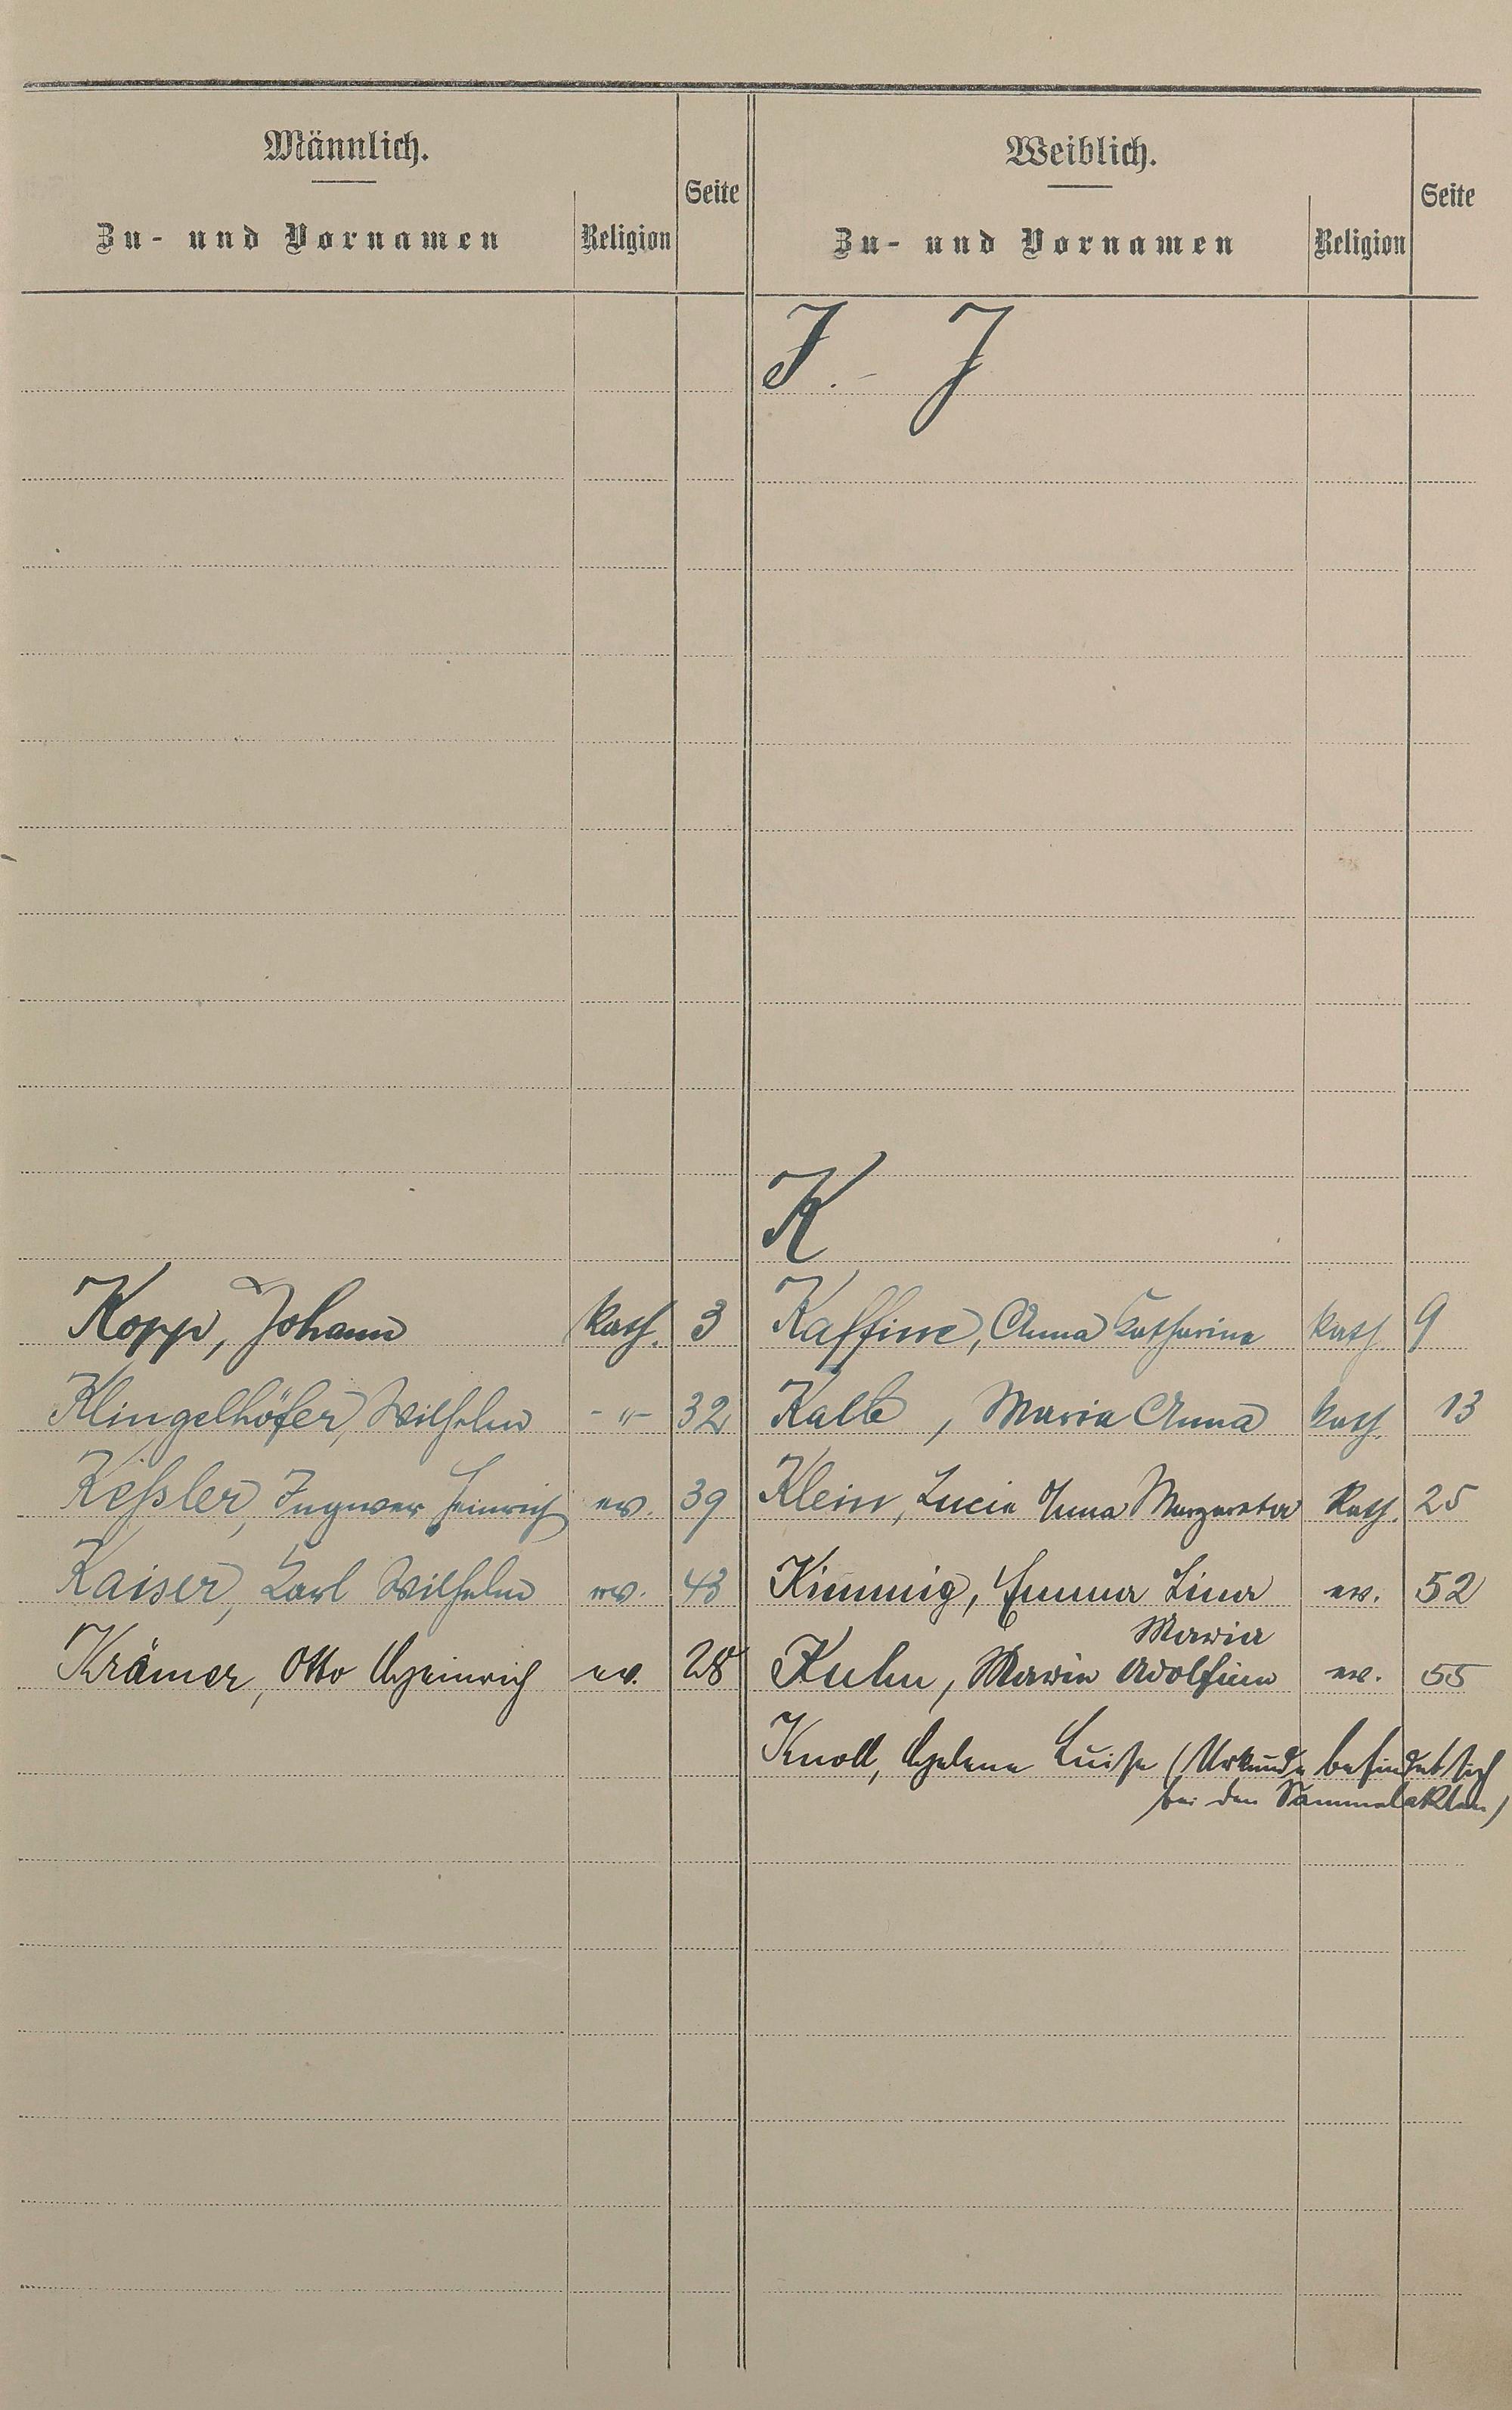 Männlich.
Zu- und Vornamen Religion Seite
Weiblich.
Zu- und Vornamen Religion Seite
I. - J
K
Kopp, Johann kath. 3
Klingelhöfer, Wilhelm - " - 32
Keßler, Ingwer Heinrich ev. 39
Kaiser, Karl Wilhelm ev. 43
Krämer, Otto Heinrich ev. 28
Kaffine, Anna Katharina kath 9
Kalb, Maria Anna kath. 13
Klein, Lucia Anna Margareta Kath. 25
Kimmig, Emma Lina ev. 52
Maria
Kuhn, Maria Adolfine ev. 55
Knoll, Helene Luise (Urkunde befindet sich
bei den Sammelakten)